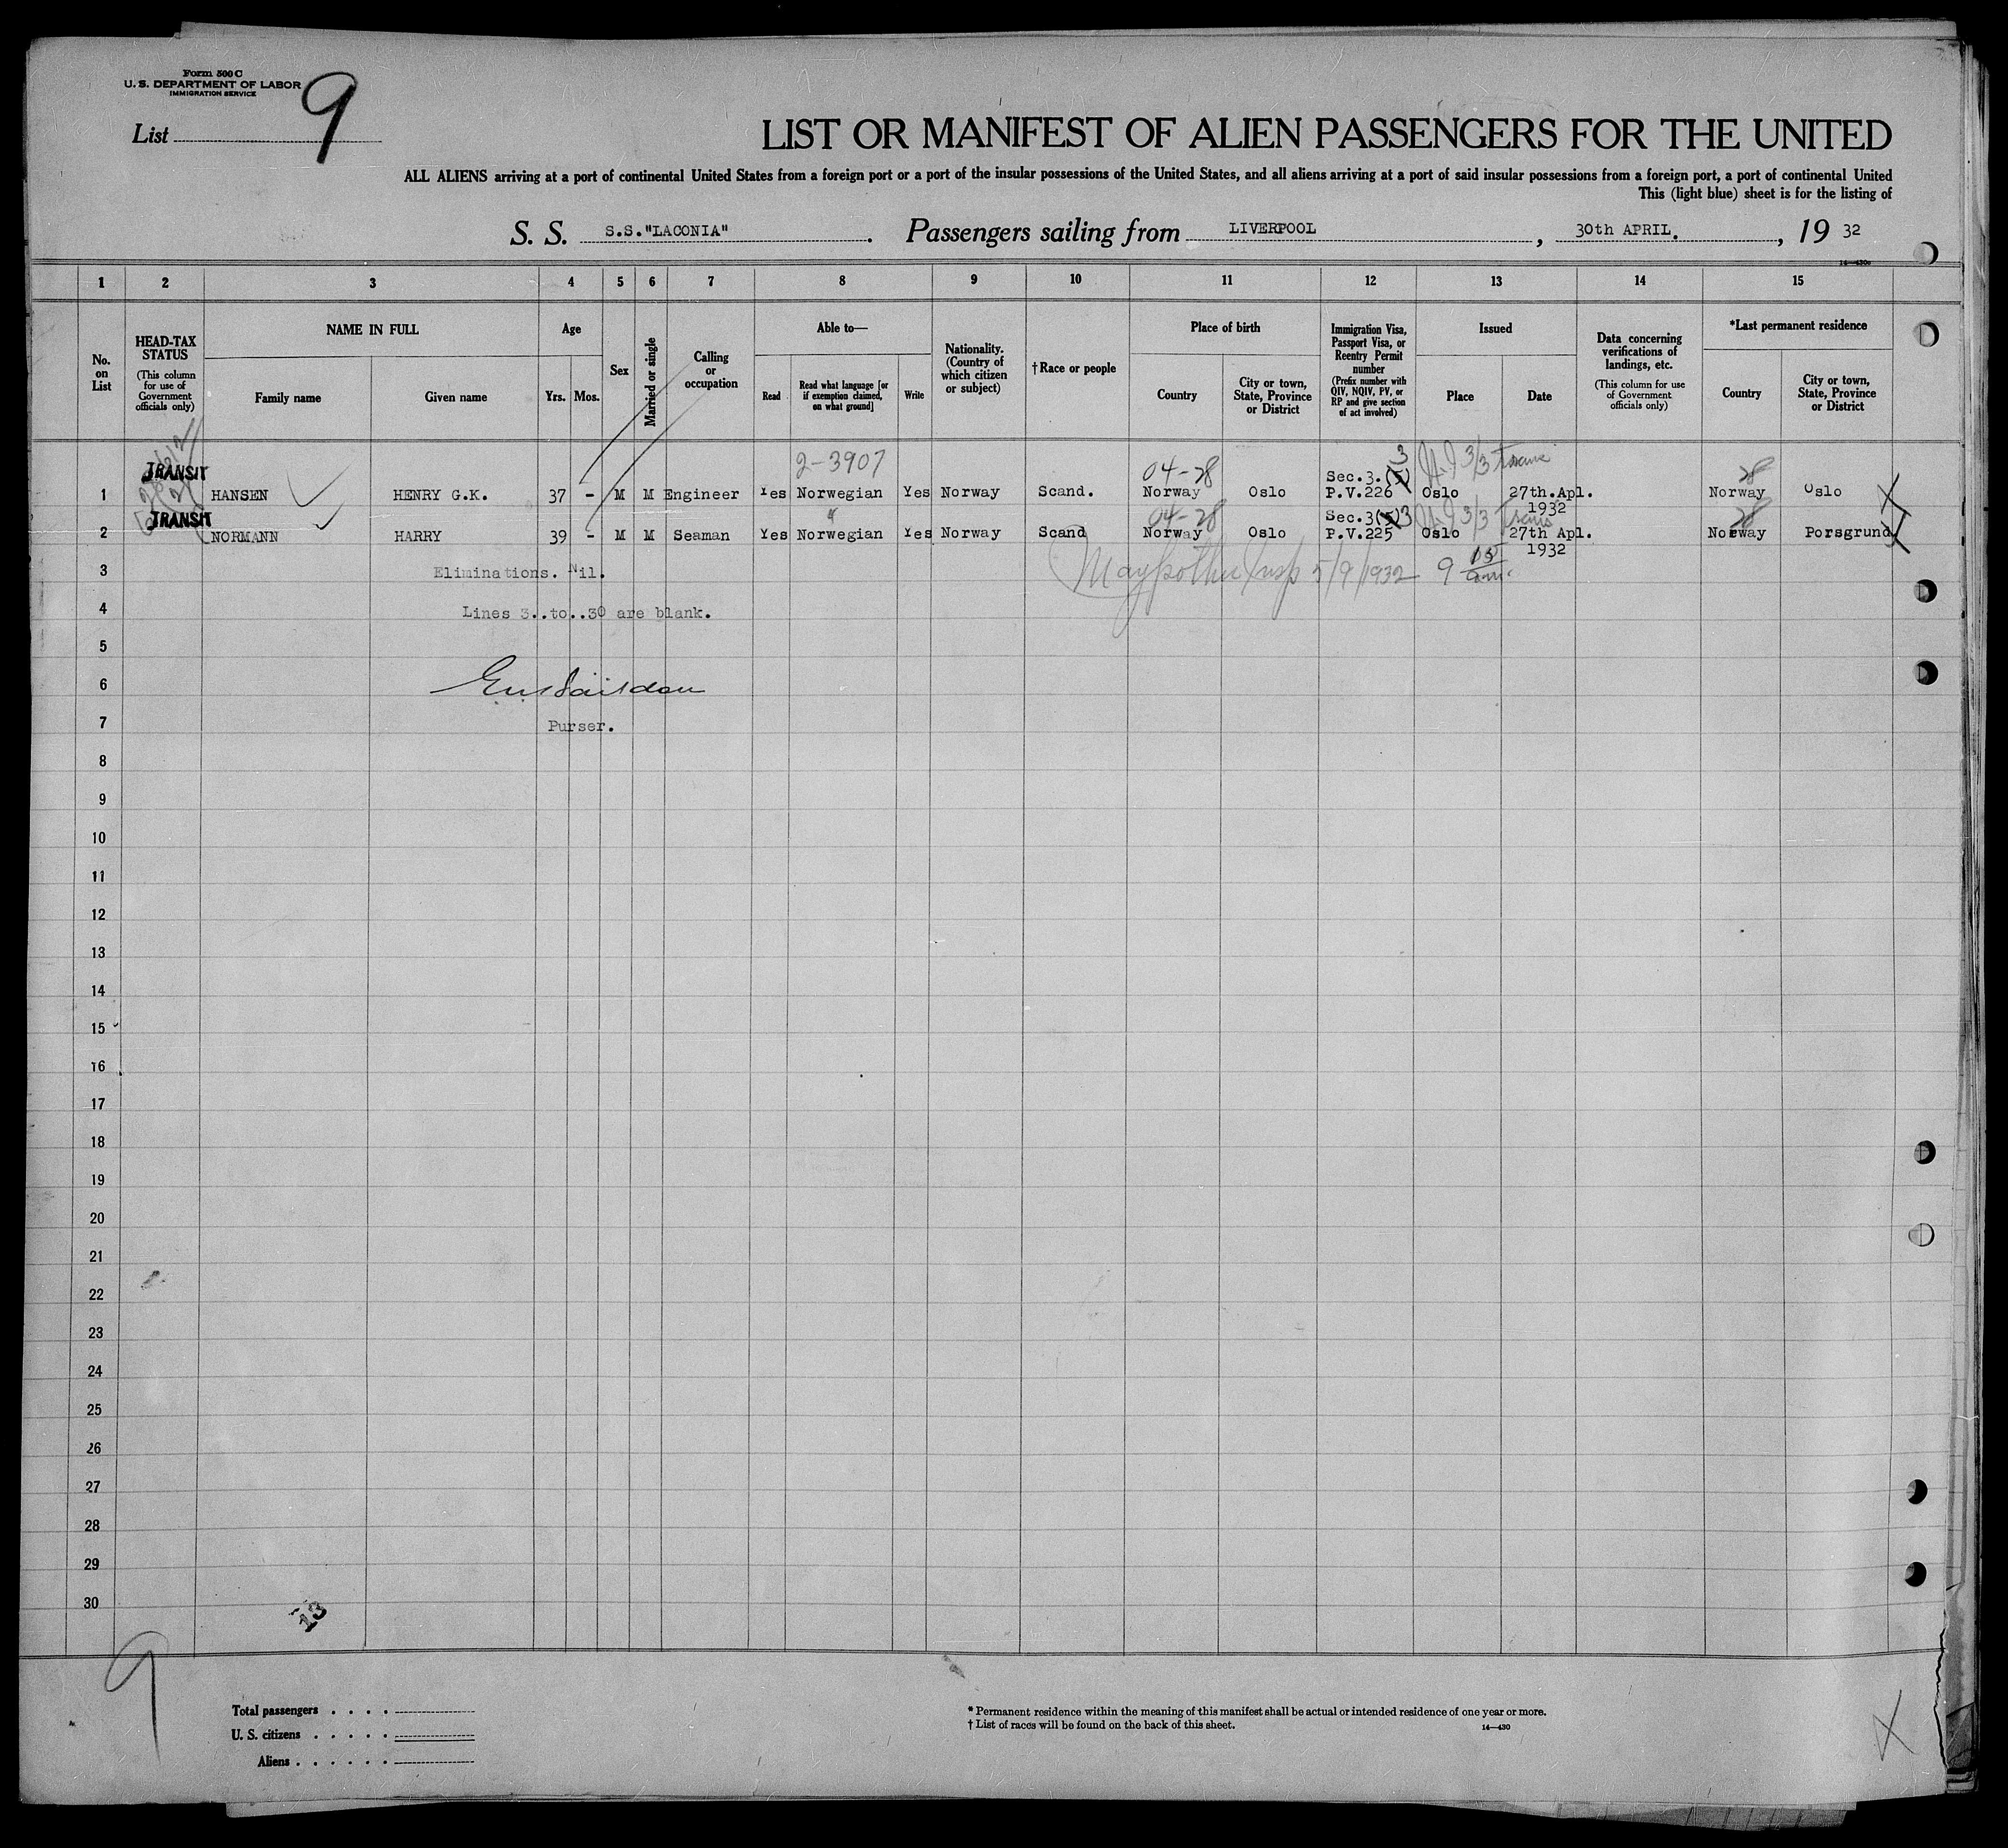 Form 500 C
U. S. DEPARTMENT OF LABOR
IMMIGRATION SERVICE
List 9
LIST OR MANIFEST OF ALIEN PASSENGERS FOR THE UNITED
ALL ALIENS arriving at a port of continental United States from a foreign port or a port of the insular possessions of the United States, and all aliens arriving at a port of said insular possessions from a foreign port, a port of continental United
This (light blue) sheet is for the listing of
S. S. S.S."LACONIA". Passengers sailing from LIVERPOOL, 30th APRIL., 19 32
14—430
1 2 3 4 5 6 7 8 9 10 11 12 13 14 15
No. on List
HEAD-TAX STATUS
(This column for use of Government officials only)
NAME IN FULL
Family name
Given name
Age
Yrs.
Mos.
Sex
Married or single
Calling or occupation
Able to—
Read
Read what language [or if exemption claimed, on what ground]
Write
Nationality. (Country of which citizen or subject)
†Race or people
Place of birth
Country
City or town, State, Province or District
Immigration Visa, Passport Visa, or Reentry Permit number
(Prefix number with QIV, NQIV, PV, or RP and give section of act involved)
Issued
Place
Date
Data concerning verifications of landings, etc.
(This column for use of Government officials only)
*Last permanent residence
Country
City or town, State, Province or District
2-3907 04-28 3 3/3 28
TRANSIT Sec.3.(5)
1 HANSEN HENRY G.K. 37 - M M Engineer Yes Norwegian Yes Norway Scand. Norway Oslo P.V.226 Oslo 27th.Apl. Norway Oslo
1932
TRANSIT 04-28 Sec.3(5)3 3/3 28
2 NORMANN HARRY 39 - M M Seaman Yes Norwegian Yes Norway Scand Norway Oslo P.V.225 Oslo 27th Apl. Norway Porsgrund
1932
3 Eliminations. Nil. Insp 5/9/1932 9 15 am.
4 Lines 3..to..30 are blank.
5
6
7 Purser.
8
9
10
11
12
13
14
15
16
17
18
19
20
21
22
23
24
25
26
27
28
29
30
13
9
Total passengers . . . .
U. S. citizens . . . . .
Aliens . . . . . .
* Permanent residence within the meaning of this manifest shall be actual or intended residence of one year or more.
† List of races will be found on the back of this sheet.
14—430